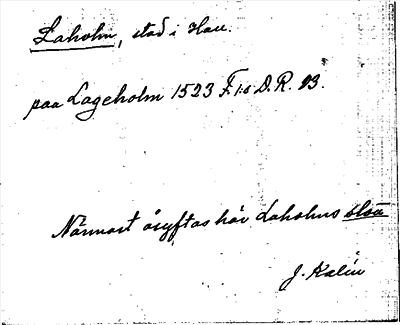 Laholm, stad i Hall.
paa Lageholm 1523 F. 1:s D. R. 93.
Närmast åsyftas här Laholms slott
J. Kalén